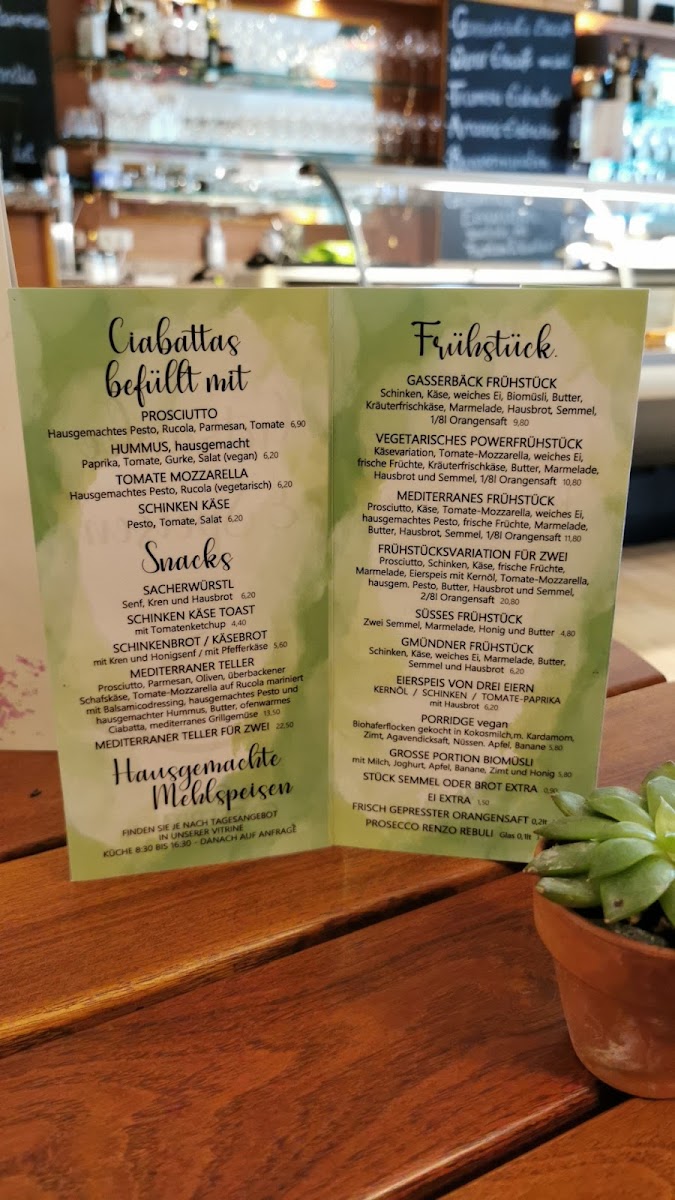 Ciabattas
befüllt mit
PROSCIUTTO
Hausgemachtes Pesto, Rucola, Parmesan, Tomate 6,90
HUMMUS, hausgemacht
Paprika, Tomate, Gurke, Salat (vegan) 6,20
TOMATE MOZZARELLA
Hausgemachtes Pesto, Rucola (vegetarisch) 6,20
SCHINKEN KÄSE
Pesto, Tomate, Salat 6,20
Snacks
SACHERWÜRSTL
Senf, Kren und Hausbrot 6,20
SCHINKEN KÄSE TOAST
mit Tomatenketchup 4,40
SCHINKENBROT / KÄSEBROT
mit Kren und Honigsenf / mit Pfefferkäse 5,60
MEDITERRANER TELLER
Prosciutto, Parmesan, Oliven, überbackener
Schafskäse, Tomate-Mozzarella auf Rucola mariniert
mit Balsamicodressing, hausgemachtes Pesto und
hausgemachter Hummus, Butter, ofenwarmes
Ciabatta, mediterranes Grillgemüse 13,50
MEDITERRANER TELLER FÜR ZWEI 22,50
Hausgemachte
Mehlspeisen
FINDEN SIE JE NACH TAGESANGEBOT
IN UNSERER VITRINE
KÜCHE 8:30 BIS 16:30 - DANACH AUF ANFRAGE
Frühstück.
GASSERBÄCK FRÜHSTÜCK
Schinken, Käse, weiches Ei, Biomüsli, Butter,
Kräuterfrischkäse, Marmelade, Hausbrot, Semmel,
1/8l Orangensaft 9,80
VEGETARISCHES POWERFRÜHSTÜCK
Käsevariation, Tomate-Mozzarella, weiches Ei,
frische Früchte, Kräuterfrischkäse, Butter, Marmelade,
Hausbrot und Semmel, 1/8l Orangensaft 10,80
MEDITERRANES FRÜHSTÜCK
Prosciutto, Käse, Tomate-Mozzarella, weiches Ei,
hausgemachtes Pesto, frische Früchte, Marmelade,
Butter, Hausbrot, Semmel, 1/8l Orangensaft 11,80
FRÜHSTÜCKSVARIATION FÜR ZWEI
Prosciutto, Schinken, Käse, frische Früchte,
Marmelade, Eierspeis mit Kernöl, Tomate-Mozzarella,
hausgem. Pesto, Butter, Hausbrot und Semmel,
2/8l Orangensaft 20,80
SÜSSES FRÜHSTÜCK
Zwei Semmel, Marmelade, Honig und Butter 4,80
GMÜNDNER FRÜHSTÜCK
Schinken, Käse, weiches Ei, Marmelade, Butter,
Semmel und Hausbrot 6,20
EIERSPEIS VON DREI EIERN
KERNÖL / SCHINKEN / TOMATE-PAPRIKA
mit Hausbrot 6,20
PORRIDGE vegan
Biohaferflocken gekocht in Kokosmilch,m, Kardamom,
Zimt, Agavendicksaft, Nüssen. Apfel, Banane 5,80
GROSSE PORTION BIOMÜSLI
mit Milch, Joghurt, Apfel, Banane, Zimt und Honig 5,80
STÜCK SEMMEL ODER BROT EXTRA 0,90
EI EXTRA 1,50
FRISCH GEPRESSTER ORANGENSAFT 0,2lt
PROSECCO RENZO REBULI Glas 0,1lt